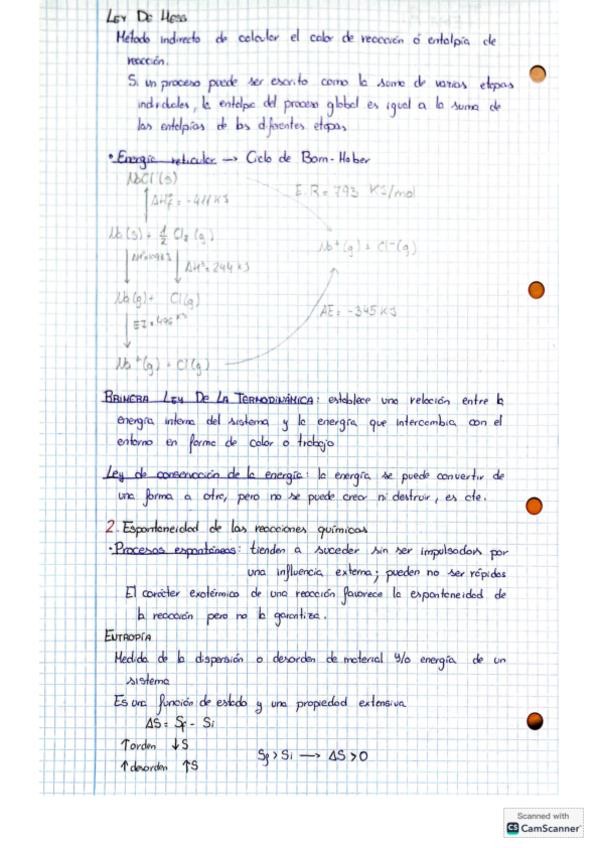 LEY DE HESS
Método indirecto de calcular el calor de reacción ó entalpía de
reacción.
Si un proceso puede ser escrito como la suma de varias etapas
individuales, la entalpía del proceso global es igual a la suma de
las entalpías de las diferentes etapas
• Energía reticular → Ciclo de Born-Haber
NaCl (s)
E.R = 793 KJ/mol
ΔHf° = -411 KJ
Na(s) + 1/2 Cl2 (g)
Na+(g) + Cl-(g)
ΔH° = 244 KJ
Na(g) + Cl(g)
AE = -345 KJ
EI = 496 KJ
Na+(g) + Cl(g)
PRIMERA LEY DE LA TERMODINÁMICA: establece una relación entre la
energía interna del sistema y la energía que intercambia con el
entorno en forma de calor o trabajo
Ley de conservación de la energía: la energía se puede convertir de
una forma a otra, pero no se puede crear ni destruir, es cte.
2. Espontaneidad de las reacciones químicas
• Procesos espontáneos: tienden a suceder sin ser impulsados por
una influencia externa; pueden no ser rápidos
El carácter exotérmico de una reacción favorece la espontaneidad de
la reacción pero no la garantiza.
ENTROPÍA
Medida de la dispersión o desorden de material y/o energía de un
sistema
Es una función de estado y una propiedad extensiva
ΔS = Sf - Si
↑orden ↓S
Sf > Si → ΔS > 0
↑desorden ↑S
Scanned with
CS CamScanner